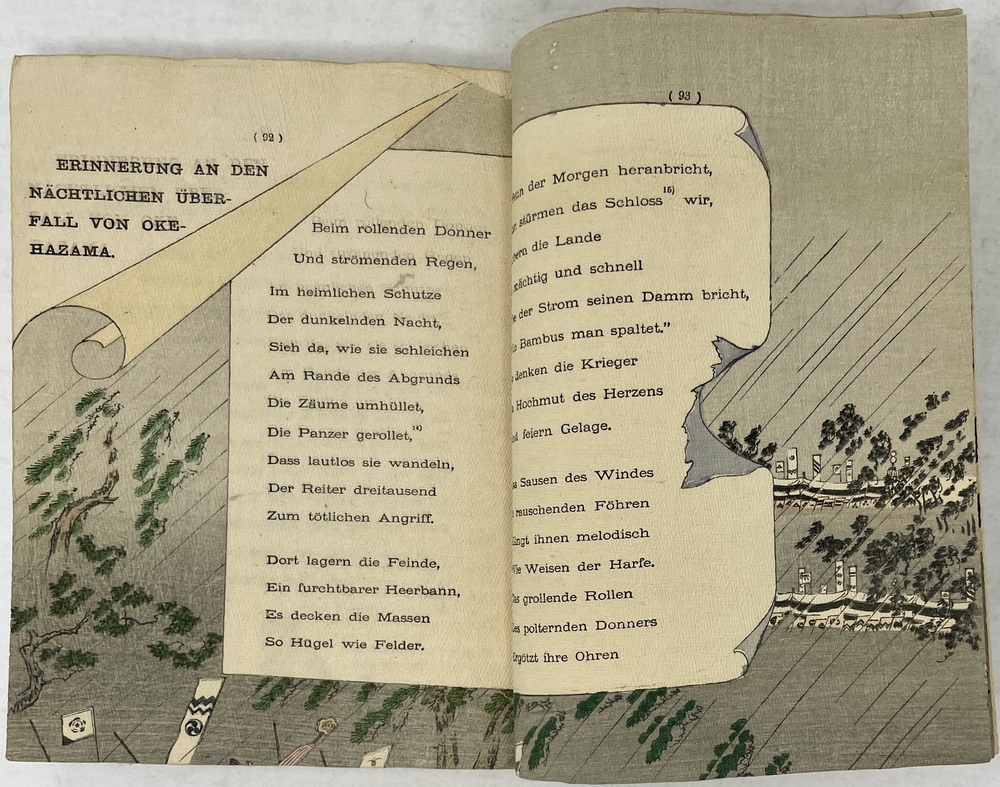 ( 92 )
ERINNERUNG AN DEN
NÄCHTLICHEN ÜBER-
FALL VON OKE-
HAZAMA.
Beim rollenden Donner
Und strömenden Regen,
Im heimlichen Schutze
Der dunkelnden Nacht,
Sieh da, wie sie schleichen
Am Rande des Abgrunds
Die Zäume umhüllet,
Die Panzer gerollet,¹⁴⁾
Dass lautlos sie wandeln,
Der Reiter dreitausend
Zum tötlichen Angriff.
Dort lagern die Feinde,
Ein furchtbarer Heerbann,
Es decken die Massen
So Hügel wie Felder.
( 93 )
der Morgen heranbricht,
stürmen das Schloss¹⁵⁾ wir,
die Lande
mächtig und schnell
der Strom seinen Damm bricht,
Bambus man spaltet."
denken die Krieger
Hochmut des Herzens
feiern Gelage.
Sausen des Windes
rauschenden Föhren
ihnen melodisch
Weisen der Harfe.
grollende Rollen
polternden Donners
Ergötzt ihre Ohren